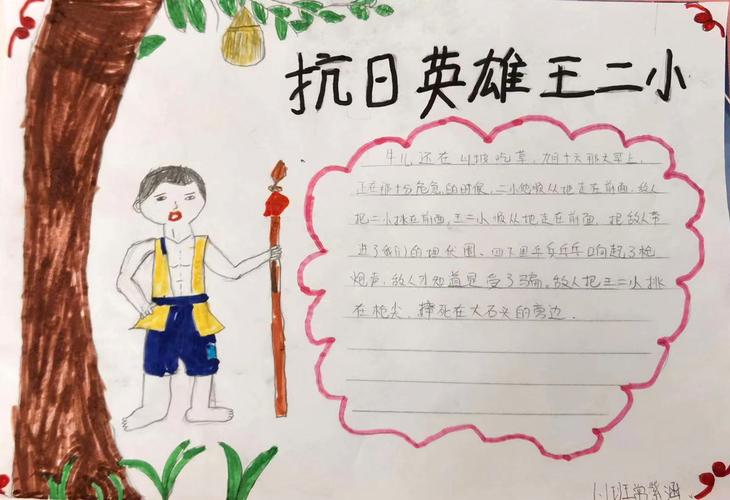 抗日英雄王二小
牛儿还在山坡吃草,九月十六那天早上,
正在那十分危急的时候,二小他顺从地走在前面,敌人
把二小挑在前面,王二小顺从地走在前面,把敌人带
进了我们的埋伏圈,四下里乒乒乓乓响起了枪
炮声,敌人才知道是受了骗,敌人把王二小挑
在枪尖,摔死在大石头的旁边.